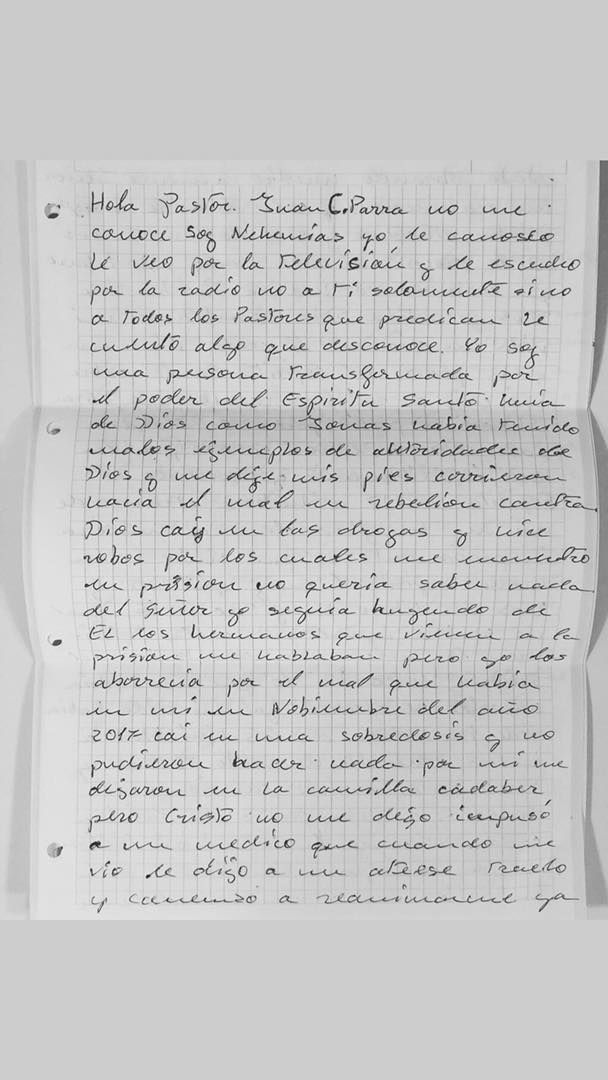 Hola Pastor. Juan C. Parra no me
conoce soy Nehemías yo le conosco
Le veo por la Televisión y le escucho
por la radio no a ti solamente sino
a Todos los Pastores que predican Le
cuento algo que desconoce. Yo soy
una persona Transformada por
el poder del Espiritu Santo. Huía
de Dios como Jonas habia Tenido
malos ejemplos de autoridades de
Dios y me dije mis pies corrieron
hacia el mal en rebelion contra
Dios caiy en las drogas y hice
robos por los cuales me encuentro
en prision no queria saber nada
del señor yo seguia huyendo de
EL los hermanos que vienen a la
prision me hablaban pero yo los
aborrecia por el mal que habia
en mi en Nobiembre del año
2017 cai en una sobredosis y no
pudieron hacer nada por mi me
dejaron en la camilla cadaber
pero Cristo no me dejo impusó
a un medico que cuando me
vio le dijo a un
y comenzó a reanimarme ya